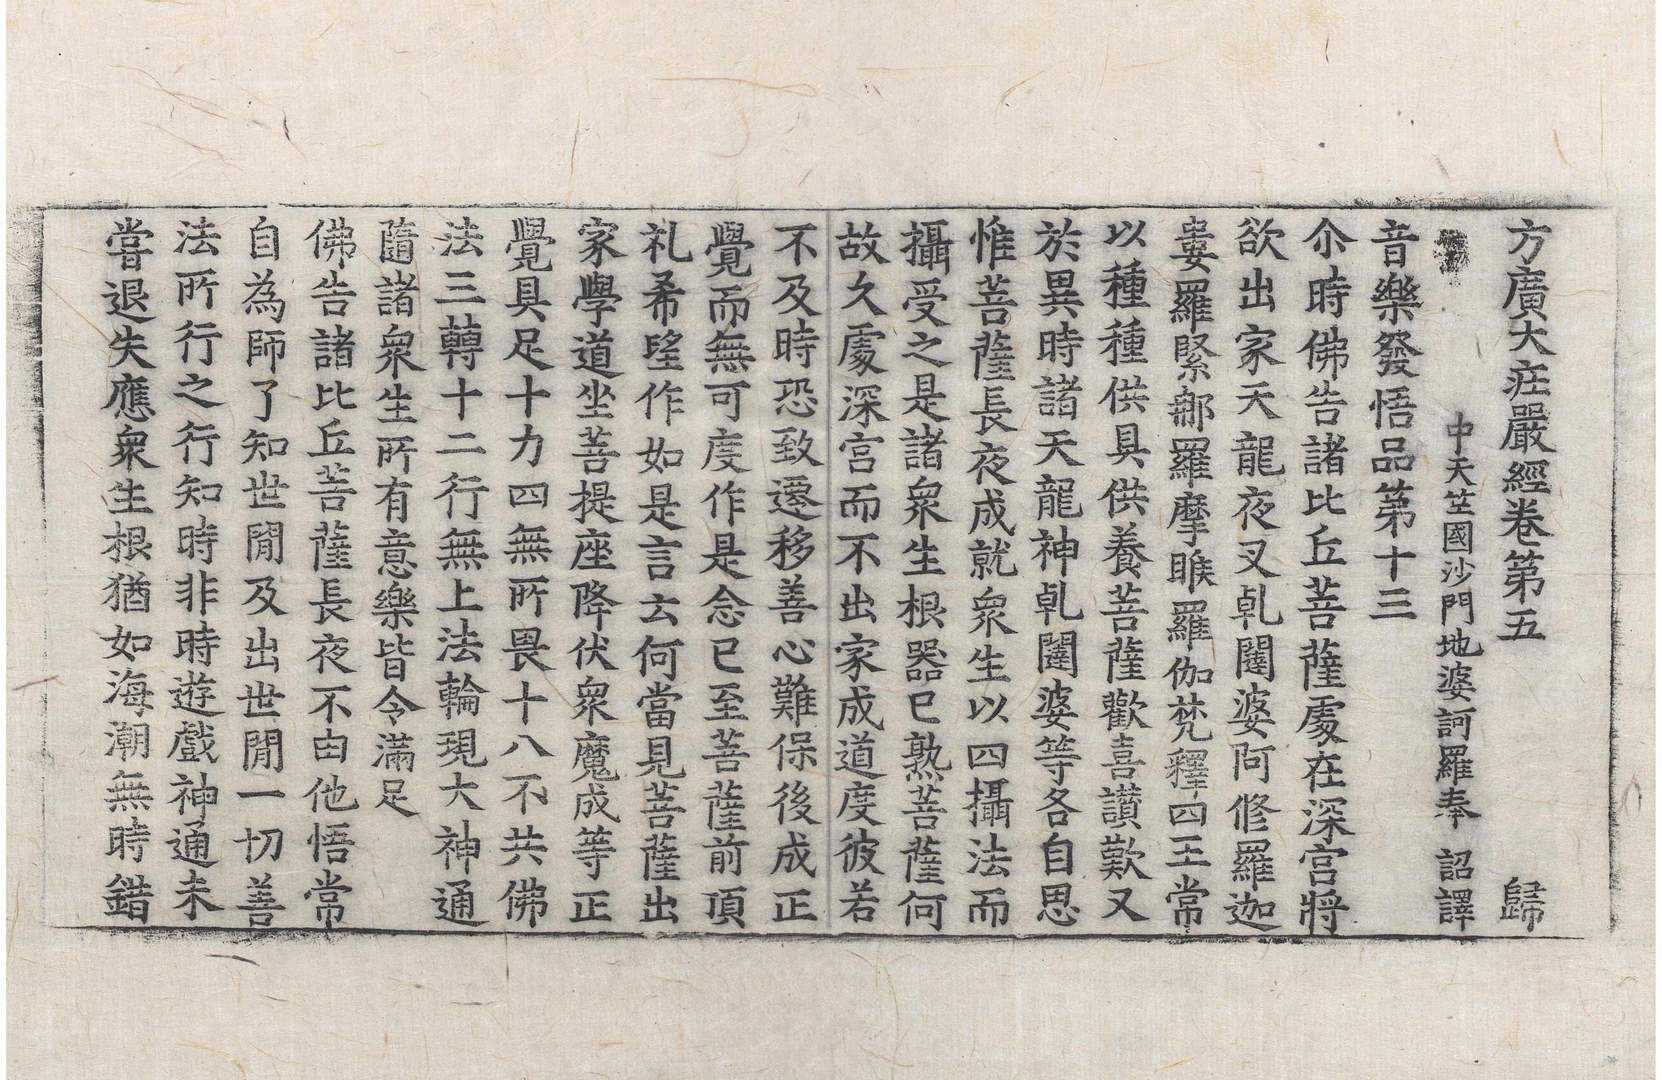 方廣大庄嚴經卷第五 歸
中天竺國沙門地婆訶羅奉 詔譯
音樂發悟品第十三
尒時佛告諸比丘菩薩處在深宮將
欲出家天龍夜叉乹闥婆阿修羅迦
婁羅緊那羅摩睺羅伽梵釋四王常
以種種供具供養菩薩歡喜讃歎又
於異時諸天龍神乹闥婆等各自思
惟菩薩長夜成就衆生以四攝法而
攝受之是諸衆生根器已熟菩薩何
故久處深宮而不出家成道度彼若
不及時恐致遷移善心難保後成正
覺而無可度作是念已至菩薩前頂
礼希望作如是言云何當見菩薩出
家學道坐菩提座降伏衆魔成等正
覺具足十力四無所畏十八不共佛
法三轉十二行無上法輪現大神通
隨諸衆生所有意樂皆令滿足
佛告諸比丘菩薩長夜不由他悟常
自為師了知世閒及出世閒一切善
法所行之行知時非時遊戲神通未
嘗退失應衆生根猶如海潮無時錯